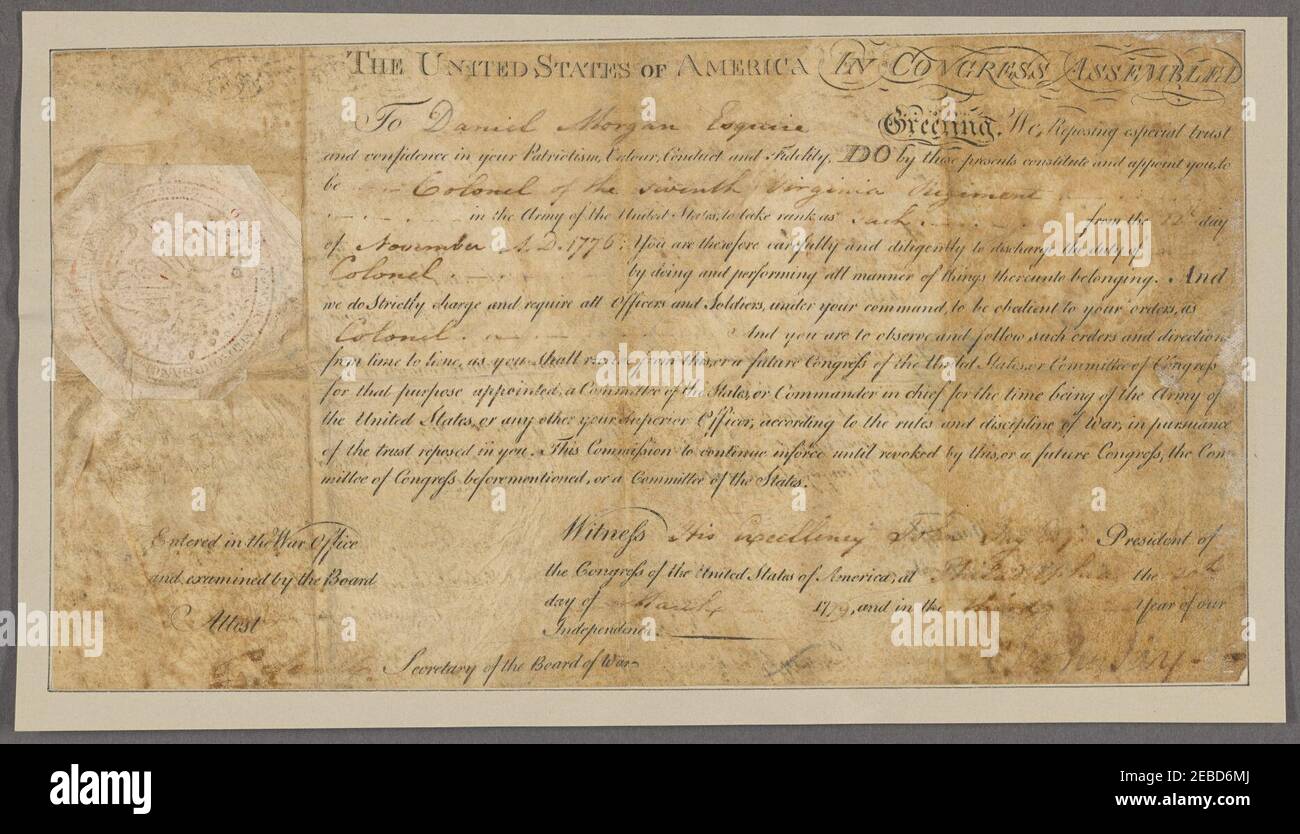 THE UNITED STATES OF AMERICA IN CONGRESS ASSEMBLED
To Daniel Morgan Esquire Greeting. We, Reposing especial trust
and confidence in your Patriotism, Valour, Conduct and Fidelity, DO by these presents constitute and appoint you, to
be Colonel of the Seventh Virginia Regiment
in the Army of the United States, to take rank as such from the 12th day
of November A.D. 1776. You are therefore carefully and diligently to discharge the duty of
Colonel by doing and performing all manner of things thereunto belonging. And
we do Strictly charge and require all Officers and Soldiers, under your command, to be obedient to your orders, as
Colonel. And you are to observe and follow such orders and directions
from time to time, as you shall receive from this, or a future Congress of the United States, or Committee of Congress
for that purpose appointed, a Committee of the States, or Commander in chief for the time being of the Army of
the United States, or any other your Superior Officer, according to the rules and discipline of War, in pursuance
of the trust reposed in you. This Commission to continue inforce until revoked by this, or a future Congress, the Com
mittee of Congress beforementioned, or a Committee of the States.
Entered in the War Office
and examined by the Board
Attest
Secretary of the Board of War
Witness His Excellency John Jay Esqr. President of
the Congress of the United States of America, at Philadelphia the 20th
day of March 1779, and in the third Year of our
Independence
John Jay
alamy
Image ID: 2EBD6MJ
www.alamy.com